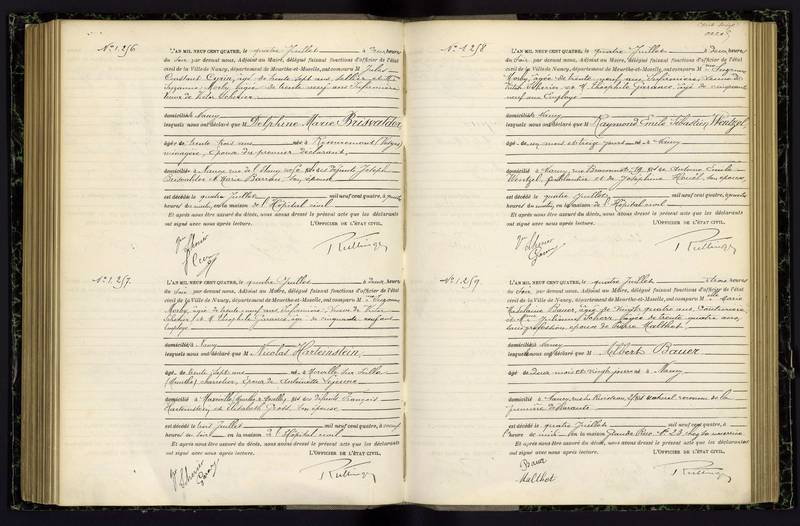 N° 1256
L'AN MIL NEUF CENT QUATRE, le quatre Juillet à deux heures
du Soir par devant nous, Adjoint au Maire, délégué faisant fonctions d'officier de l'état
civil de la Ville de Nancy, département de Meurthe-et-Moselle, ont comparu M Jules
Constant Cyrin, âgé de trente sept ans, sellier et
Suzanne Morby, âgée de trente neuf ans infirmière
veuve de Victor Scherier
domiciliés à Nancy
lesquels nous ont déclaré que M Delphine Marie Brisvalder
âgée de trente trois ans née à Remiremont (Vosges)
ménagère, épouse du premier déclarant
domiciliée à Nancy rue de l'Etang fille des défunts Joseph
et Marie son épouse
est décédée le quatre Juillet mil neuf cent quatre, à
heures du matin, en la maison de l'Hôpital civil
Et après nous être assuré du décès, nous avons dressé le présent acte que les déclarants
ont signé avec nous après lecture. L'OFFICIER DE L'ÉTAT CIVIL,
N° 1257.
L'AN MIL NEUF CENT QUATRE, le quatre Juillet à deux heures
du Soir par devant nous, Adjoint au Maire, délégué faisant fonctions d'officier de l'état
civil de la Ville de Nancy, département de Meurthe-et-Moselle, ont comparu M Suzanne
Morby, âgée de trente neuf ans infirmière, veuve de Victor
Scherier, et M Théophile Garance, âgé de cinquante neuf ans
employé
domiciliés à Nancy
lesquels nous ont déclaré que M Nicolas Hartenstein
âgé de trente sept ans né à Morville sur Seille
(Meurthe) charretier, époux de Antoinette Lejeune
domicilié à fils des défunts François
Hartenstein et Elisabeth son épouse
est décédé le trois Juillet mil neuf cent quatre, à neuf
heures du soir en la maison de l'Hôpital civil
Et après nous être assuré du décès, nous avons dressé le présent acte que les déclarants
ont signé avec nous après lecture. L'OFFICIER DE L'ÉTAT CIVIL,
N° 1258
L'AN MIL NEUF CENT QUATRE, le quatre Juillet à deux heures
du Soir par devant nous, Adjoint au Maire, délégué faisant fonctions d'officier de l'état
civil de la Ville de Nancy, département de Meurthe-et-Moselle, ont comparu M Suzanne
Morby, âgée de trente neuf ans, infirmière, veuve de
Victor Scherier et M Théophile Garance, âgé de cinquante
neuf ans Employé
domiciliés à Nancy
lesquels nous ont déclaré que M Raymond Emile Sébastien Wentzel
âgé de un mois et treize jours né à Nancy
domicilié à Nancy, rue fils de Antoine Emile
Wentzel, ferblantier et de Joséphine son épouse
est décédé le quatre Juillet mil neuf cent quatre, à
heures du matin, en la maison de l'Hôpital civil
Et après nous être assuré du décès, nous avons dressé le présent acte que les déclarants
ont signé avec nous après lecture. L'OFFICIER DE L'ÉTAT CIVIL,
N° 1259.
L'AN MIL NEUF CENT QUATRE, le quatre Juillet à trois heures
du Soir par devant nous, Adjoint au Maire, délégué faisant fonctions d'officier de l'état
civil de la Ville de Nancy, département de Meurthe-et-Moselle, ont comparu M Marie
Madeleine Bauer, âgée de vingt quatre ans couturière,
et âgée de trente quatre ans,
sans profession, épouse de Malthot
domiciliés à Nancy
lesquelles nous ont déclaré que M Albert Bauer
âgé de deux mois et vingt jours né à Nancy
domicilié à Nancy, rue du Ruisseau fils naturel reconnu de la
première déclarante
est décédé le quatre Juillet mil neuf cent quatre, à
l'heure de midi en la maison N° 23 chez sa nourrice
Et après nous être assuré du décès, nous avons dressé le présent acte que les déclarants
ont signé avec nous après lecture. L'OFFICIER DE L'ÉTAT CIVIL,
Bauer
Malthot